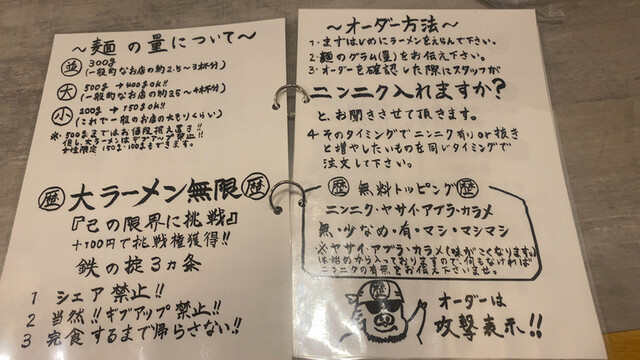 〜麺の量について〜
並 300g
(一般的なお店の約2.5〜3杯分)
大 500g → 400g OK!!
(一般的なお店の約3.5〜4杯分)
小 200g → 150g OK!!
(これで一般のお店の大もりくらい)
※500gまではお値段据え置き!!
但し、大ラーメンはギブアップ禁止!!
女性限定 150g・100gもできます。
歴 大ラーメン無限 歴
『己の限界に挑戦』
+100円で挑戦権獲得!!
鉄の掟3ヵ条
1 シェア禁止!!
2 当然!!ギブアップ禁止!!
3 完食するまで帰らさない!!
〜オーダー方法〜
1・まずはじめにラーメンをえらんで下さい。
2・麺のグラム(量)をお伝え下さい。
3・オーダーを確認した際にスタッフが
ニンニク入れますか?
と、お聞きさせて頂きます。
4・そのタイミングでニンニク有りor抜き
と増やしたいものを同じタイミングで
注文して下さい。
歴 無料トッピング 歴
ニンニク・ヤサイ・アブラ・カラメ
無・少なめ・有・マシ・マシマシ
※ヤサイ・アブラ・カラメ(味がこくなります。)
は始めから入っておりますので、何もなければ
ニンニクの有無をお伝え下さいませ。
歴
オーダーは
攻撃表示!!